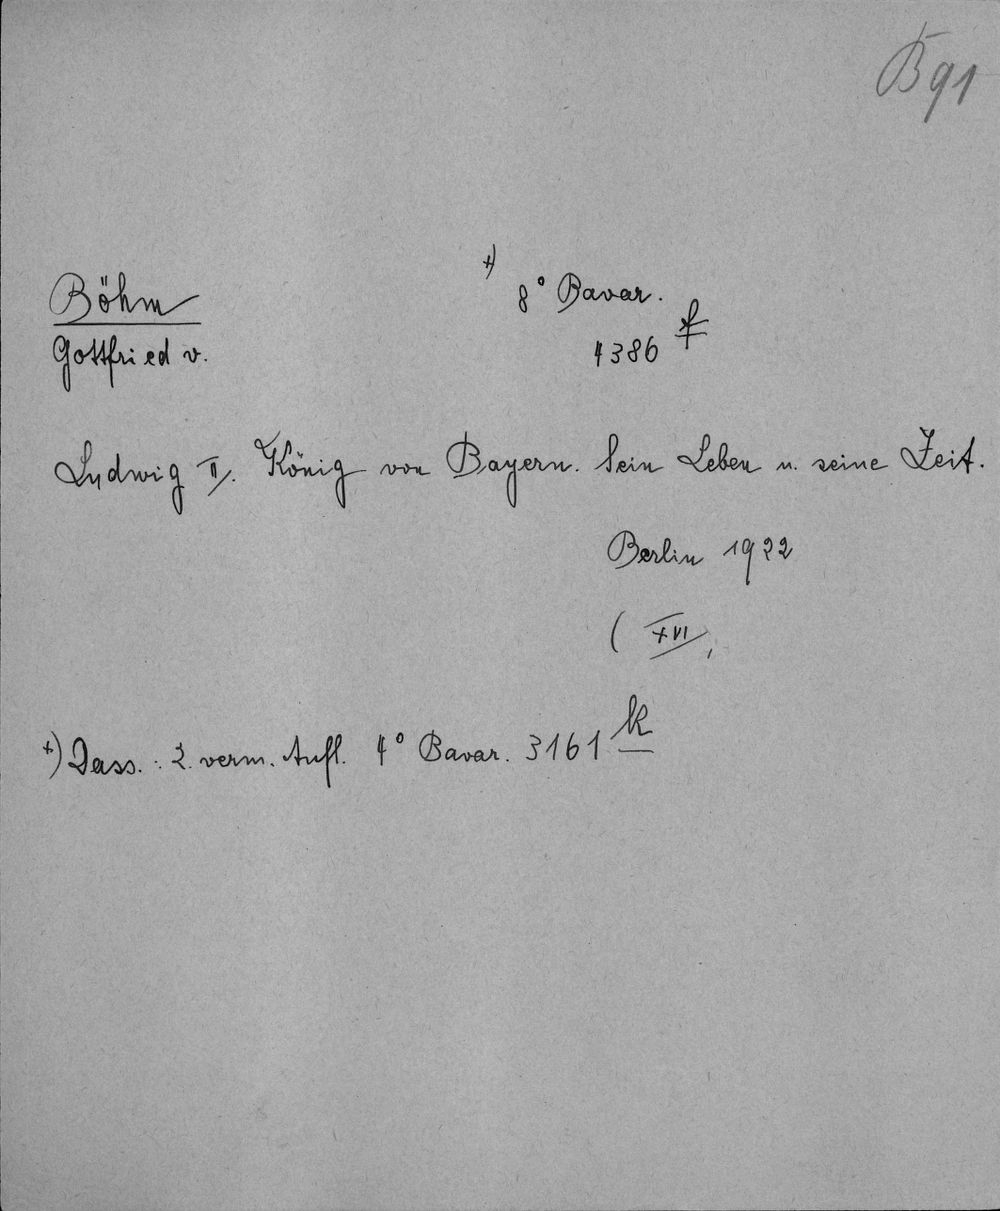 B91
Böhm
Gottfried v.
+) 8° Bavar.
4386 f
Ludwig II. König von Bayern. Sein Leben u. seine Zeit.
Berlin 1922
( XVI,
+) Dass. : 2. verm. Aufl. 4° Bavar. 3161 k